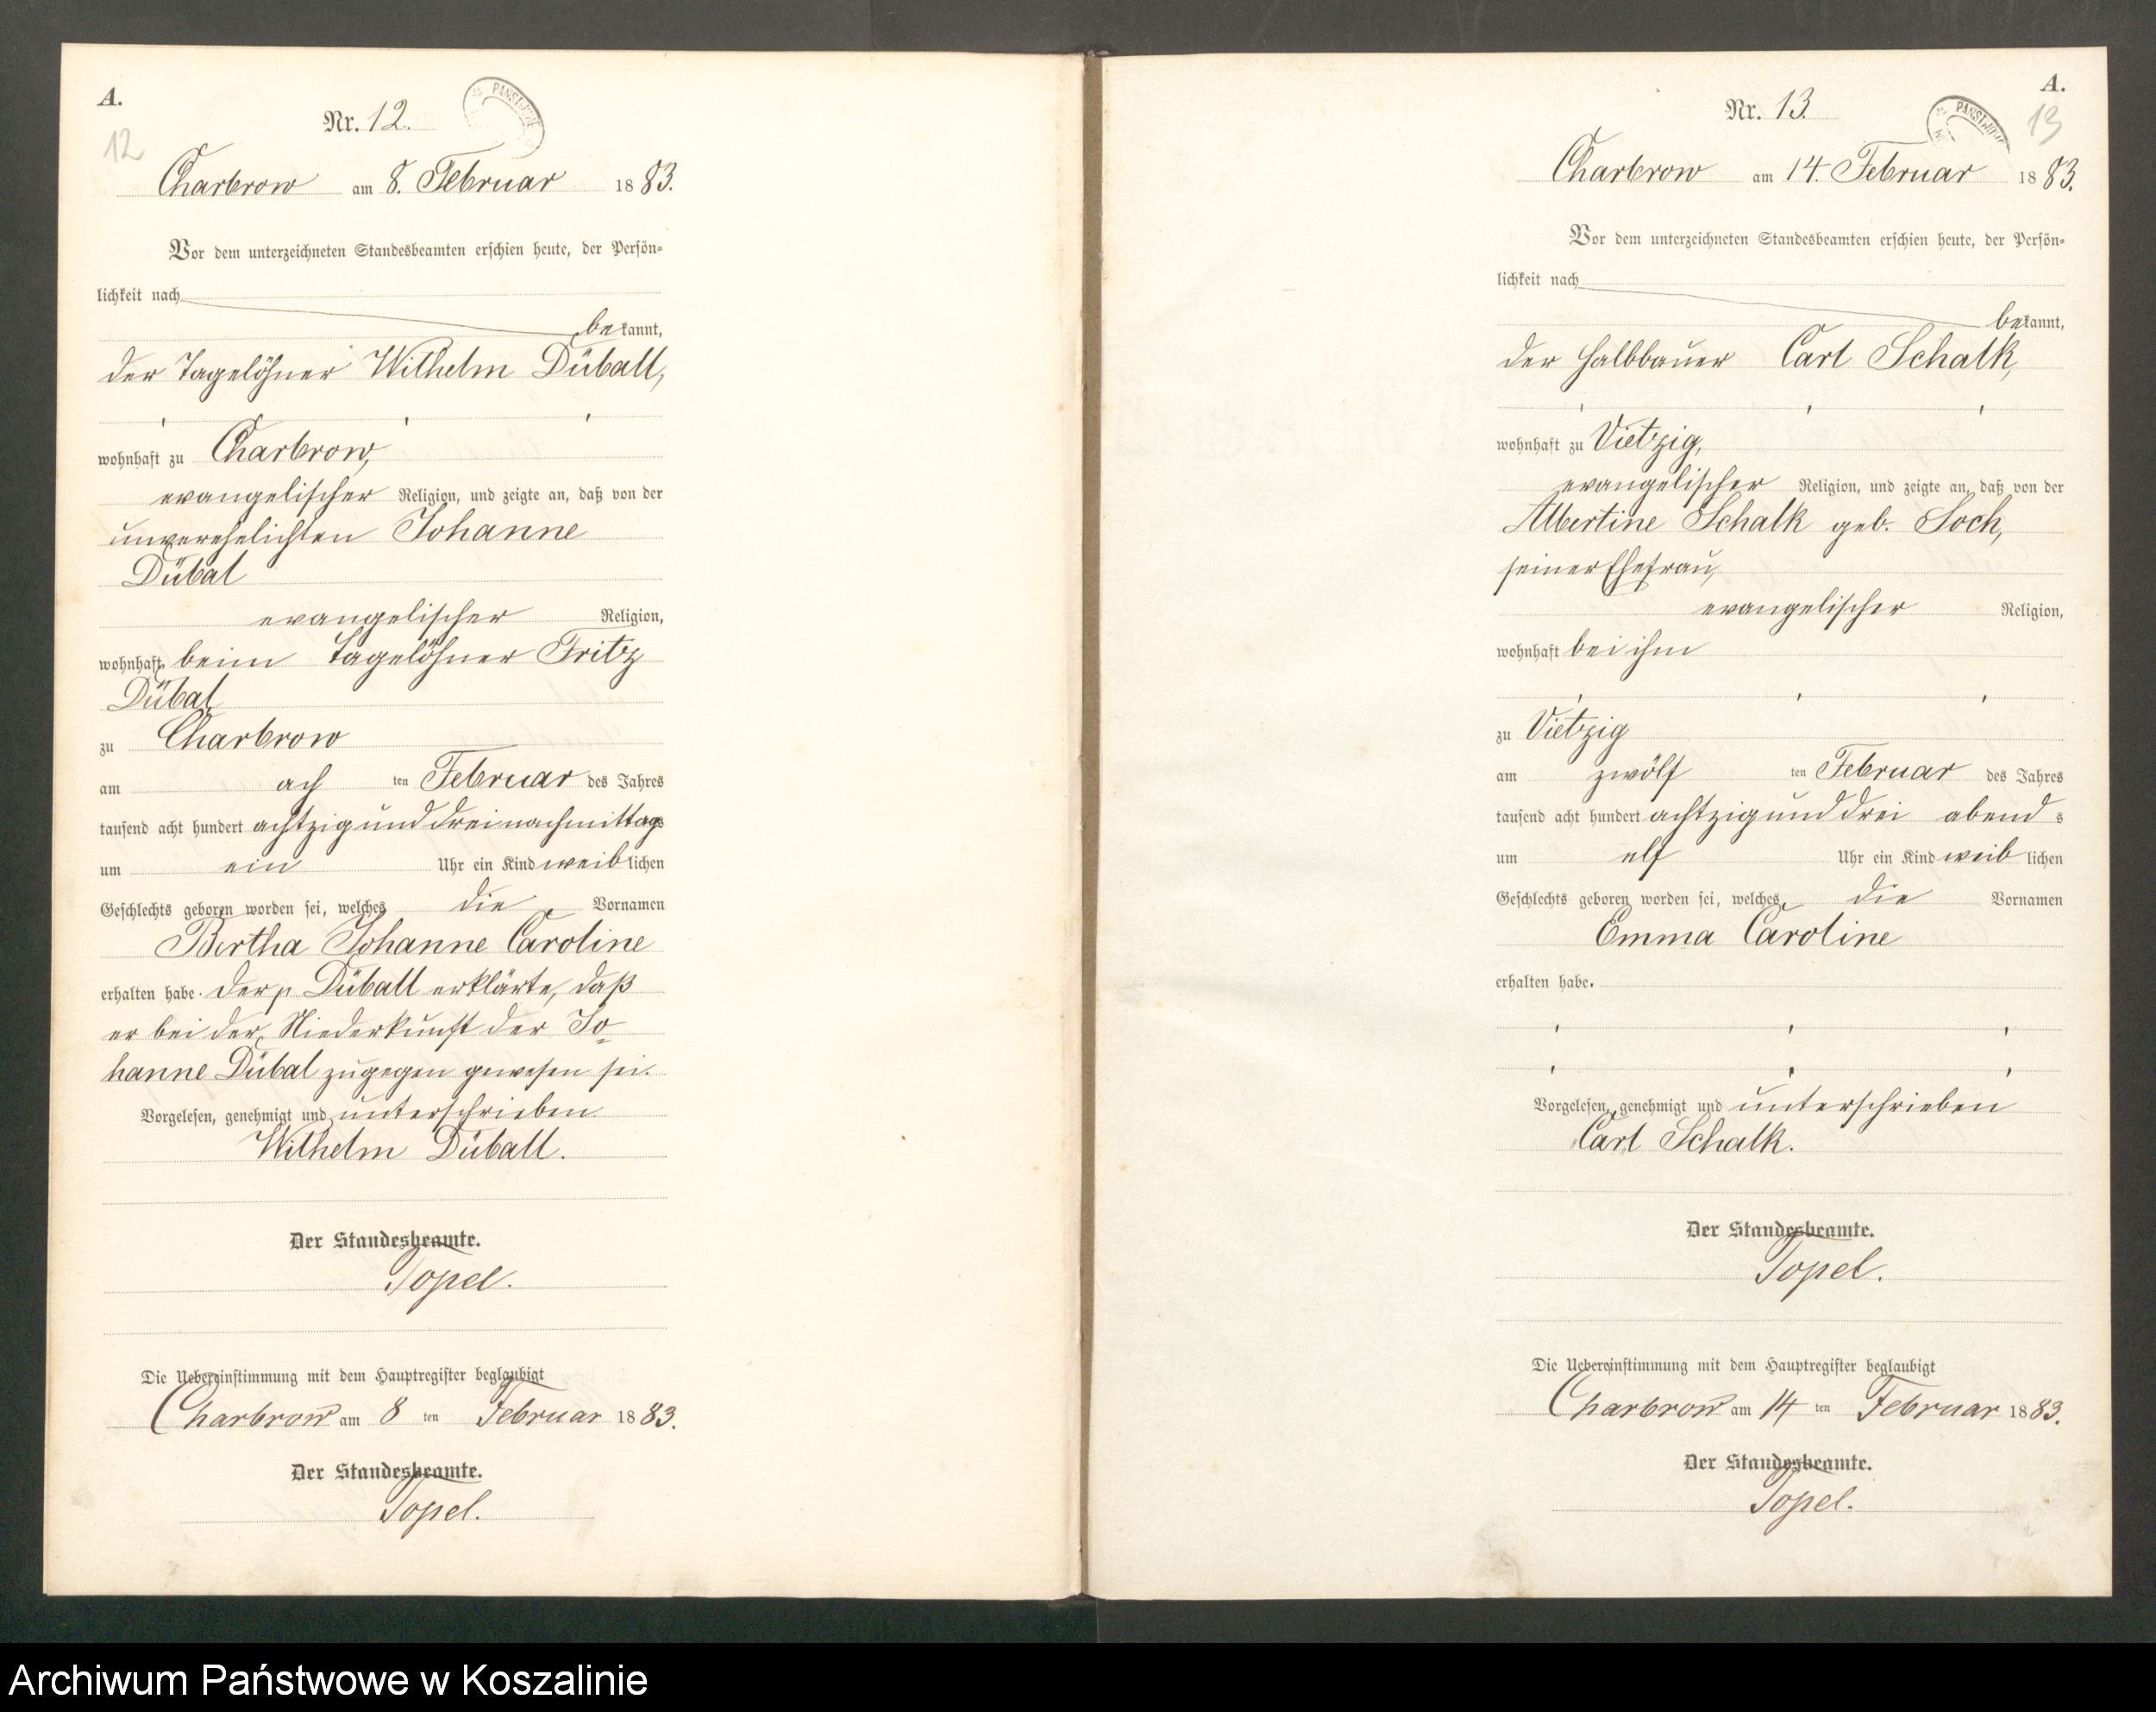 A.
12
Nr. 12.
PAŃSTWOWE
Charbrow am 8. Februar 1883.
Vor dem unterzeichneten Standesbeamten erschien heute, der Persön-
lichkeit nach
bekannt,
der Tagelöhner Wilhelm Düball,
wohnhaft zu Charbrow,
evangelischer Religion, und zeigte an, daß von der
unverehelichten Johanne
Dübal
evangelischer Religion,
wohnhaft beim Tagelöhner Fritz
Dübal
zu Charbrow
am ach ten Februar des Jahres
tausend acht hundert achtzig und drei nachmittags
um ein Uhr ein Kind weiblichen
Geschlechts geboren worden sei, welches die Vornamen
Bertha Johanne Caroline
erhalten habe. Der p Düball erklärte, daß
er bei der Niederkunft der Jo-
hanne Dübal zugegen gewesen sei.
Vorgelesen, genehmigt und unterschrieben
Wilhelm Düball.
Der Standesbeamte.
Topel.
Die Uebereinstimmung mit dem Hauptregister beglaubigt
Charbrow am 8 ten Februar 1883.
Der Standesbeamte.
Topel.
A.
13
Nr. 13.
PAŃSTWOWE
Charbrow am 14. Februar 1883.
Vor dem unterzeichneten Standesbeamten erschien heute, der Persön-
lichkeit nach
bekannt,
der Halbbauer Carl Schalk,
wohnhaft zu Vietzig,
evangelischer Religion, und zeigte an, daß von der
Albertine Schalk geb. Soch,
seiner Ehefrau,
evangelischer Religion,
wohnhaft bei ihm
zu Vietzig
am zwölf ten Februar des Jahres
tausend acht hundert achtzig und drei abends
um elf Uhr ein Kind weiblichen
Geschlechts geboren worden sei, welches die Vornamen
Emma Caroline
erhalten habe.
Vorgelesen, genehmigt und unterschrieben
Carl Schalk.
Der Standesbeamte.
Topel.
Die Uebereinstimmung mit dem Hauptregister beglaubigt
Charbrow am 14 ten Februar 1883.
Der Standesbeamte.
Topel.
Archiwum Państwowe w Koszalinie